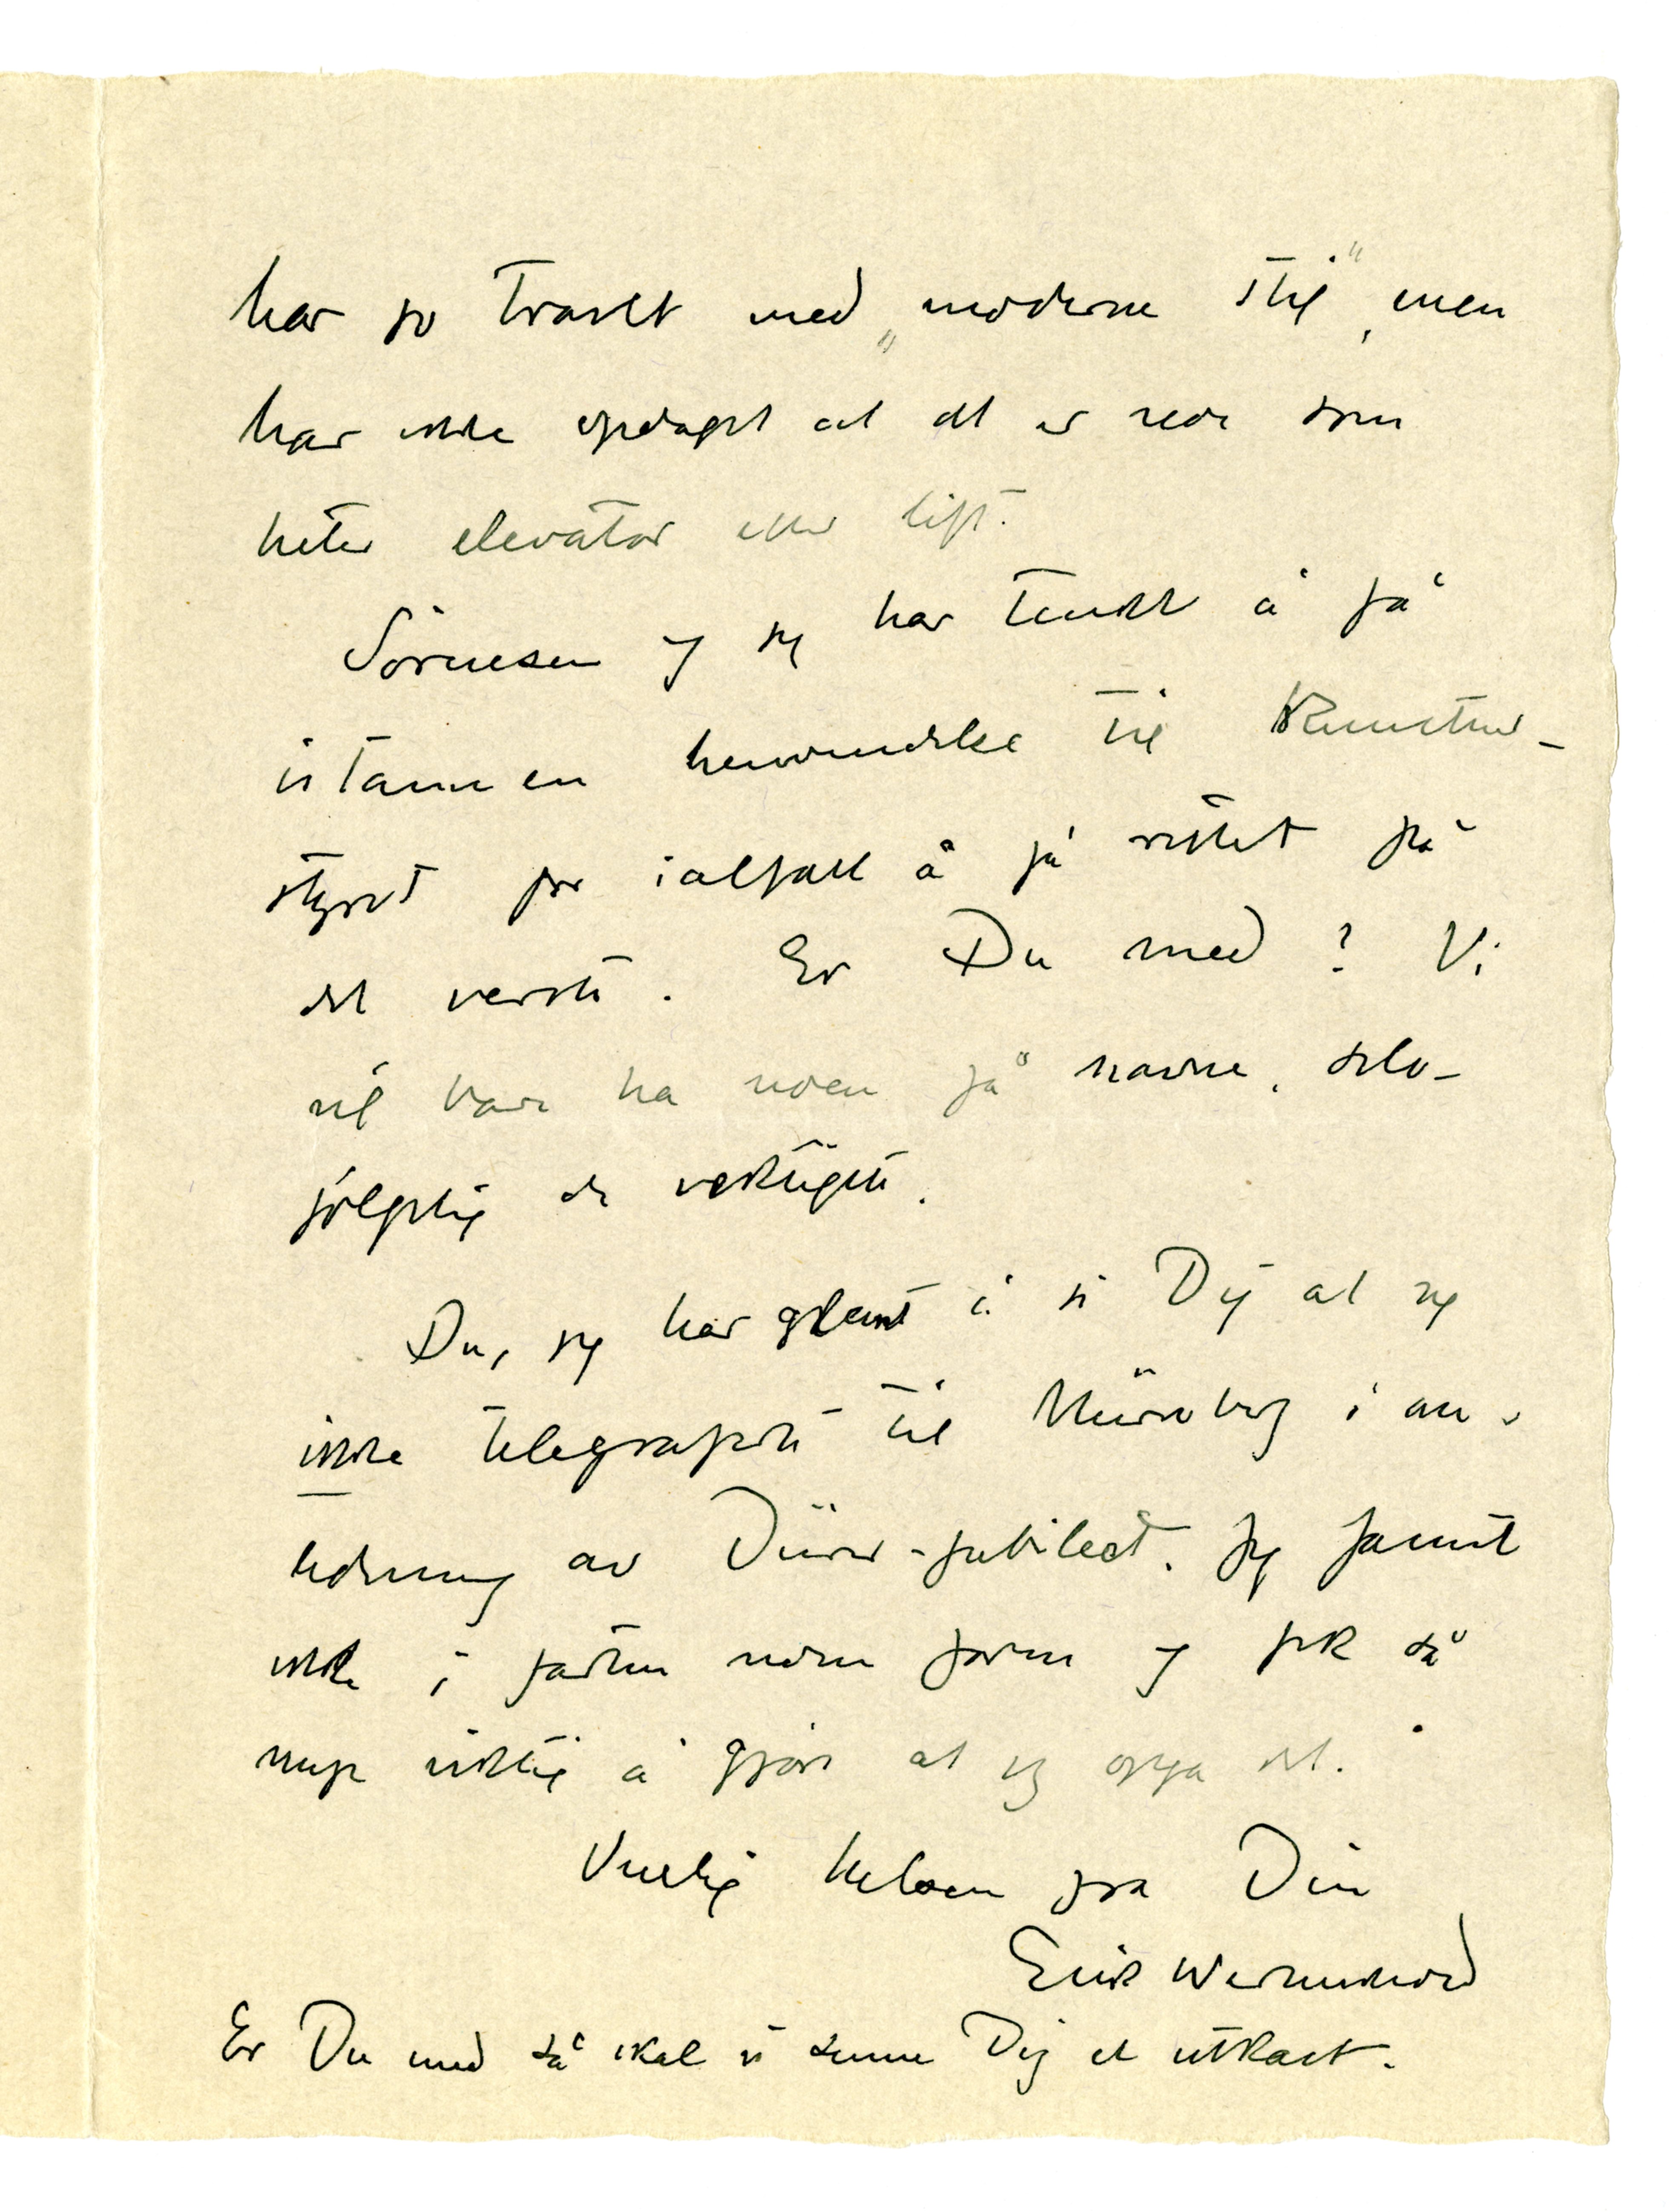 har jo travlt med „moderne stil", men
har ikke opdaget at det er noe som
heter elevator eller lift.
Sörensen og jeg har tenkt å få
istann en henvendelse til Kunstner-
styret for ialfall å få rettet på
det verste. Er Du med? Vi
vil bare ha noen få navne, selv-
følgelig de vektigste.
Du, jeg har glemt å si Dig at jeg
ikke telegraferte til Nürnberg i an-
ledning av Dürer-jubileet. Jeg fannt
ikke i farten noen form og fik så
mye viktig å gjøre at jeg opga det.
Vennlig hilsen fra Din
Erik Werenskiold
Er Du med så skal vi senne Dig et utkast.